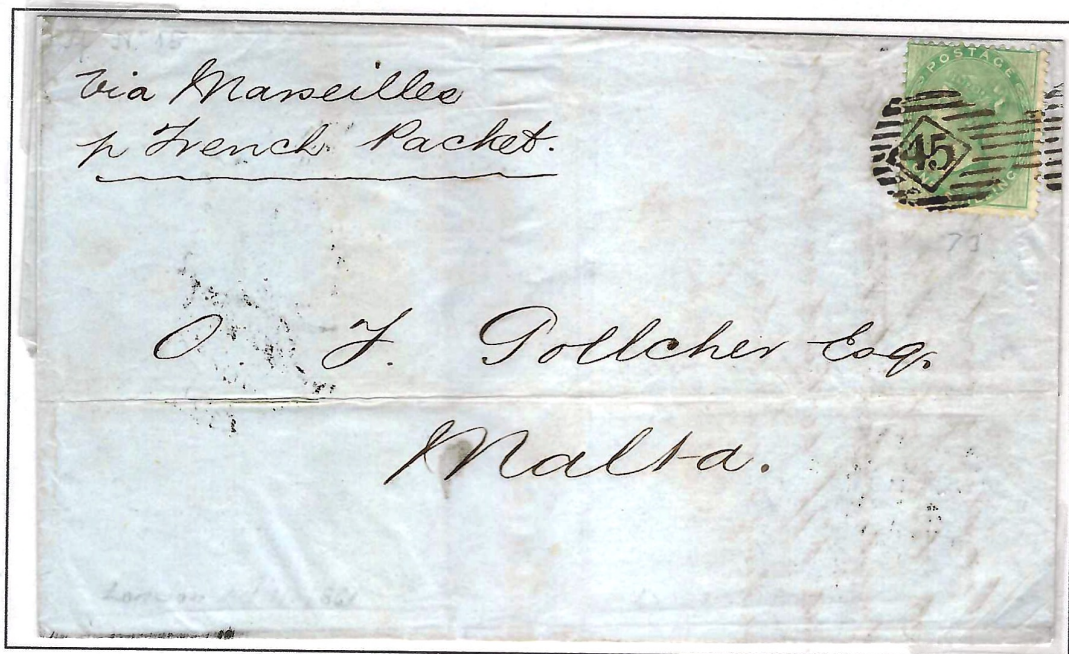 Via Marseilles
p French Packet.
POSTAGE
45
73
O. F. Gollcher Esq.
Malta.